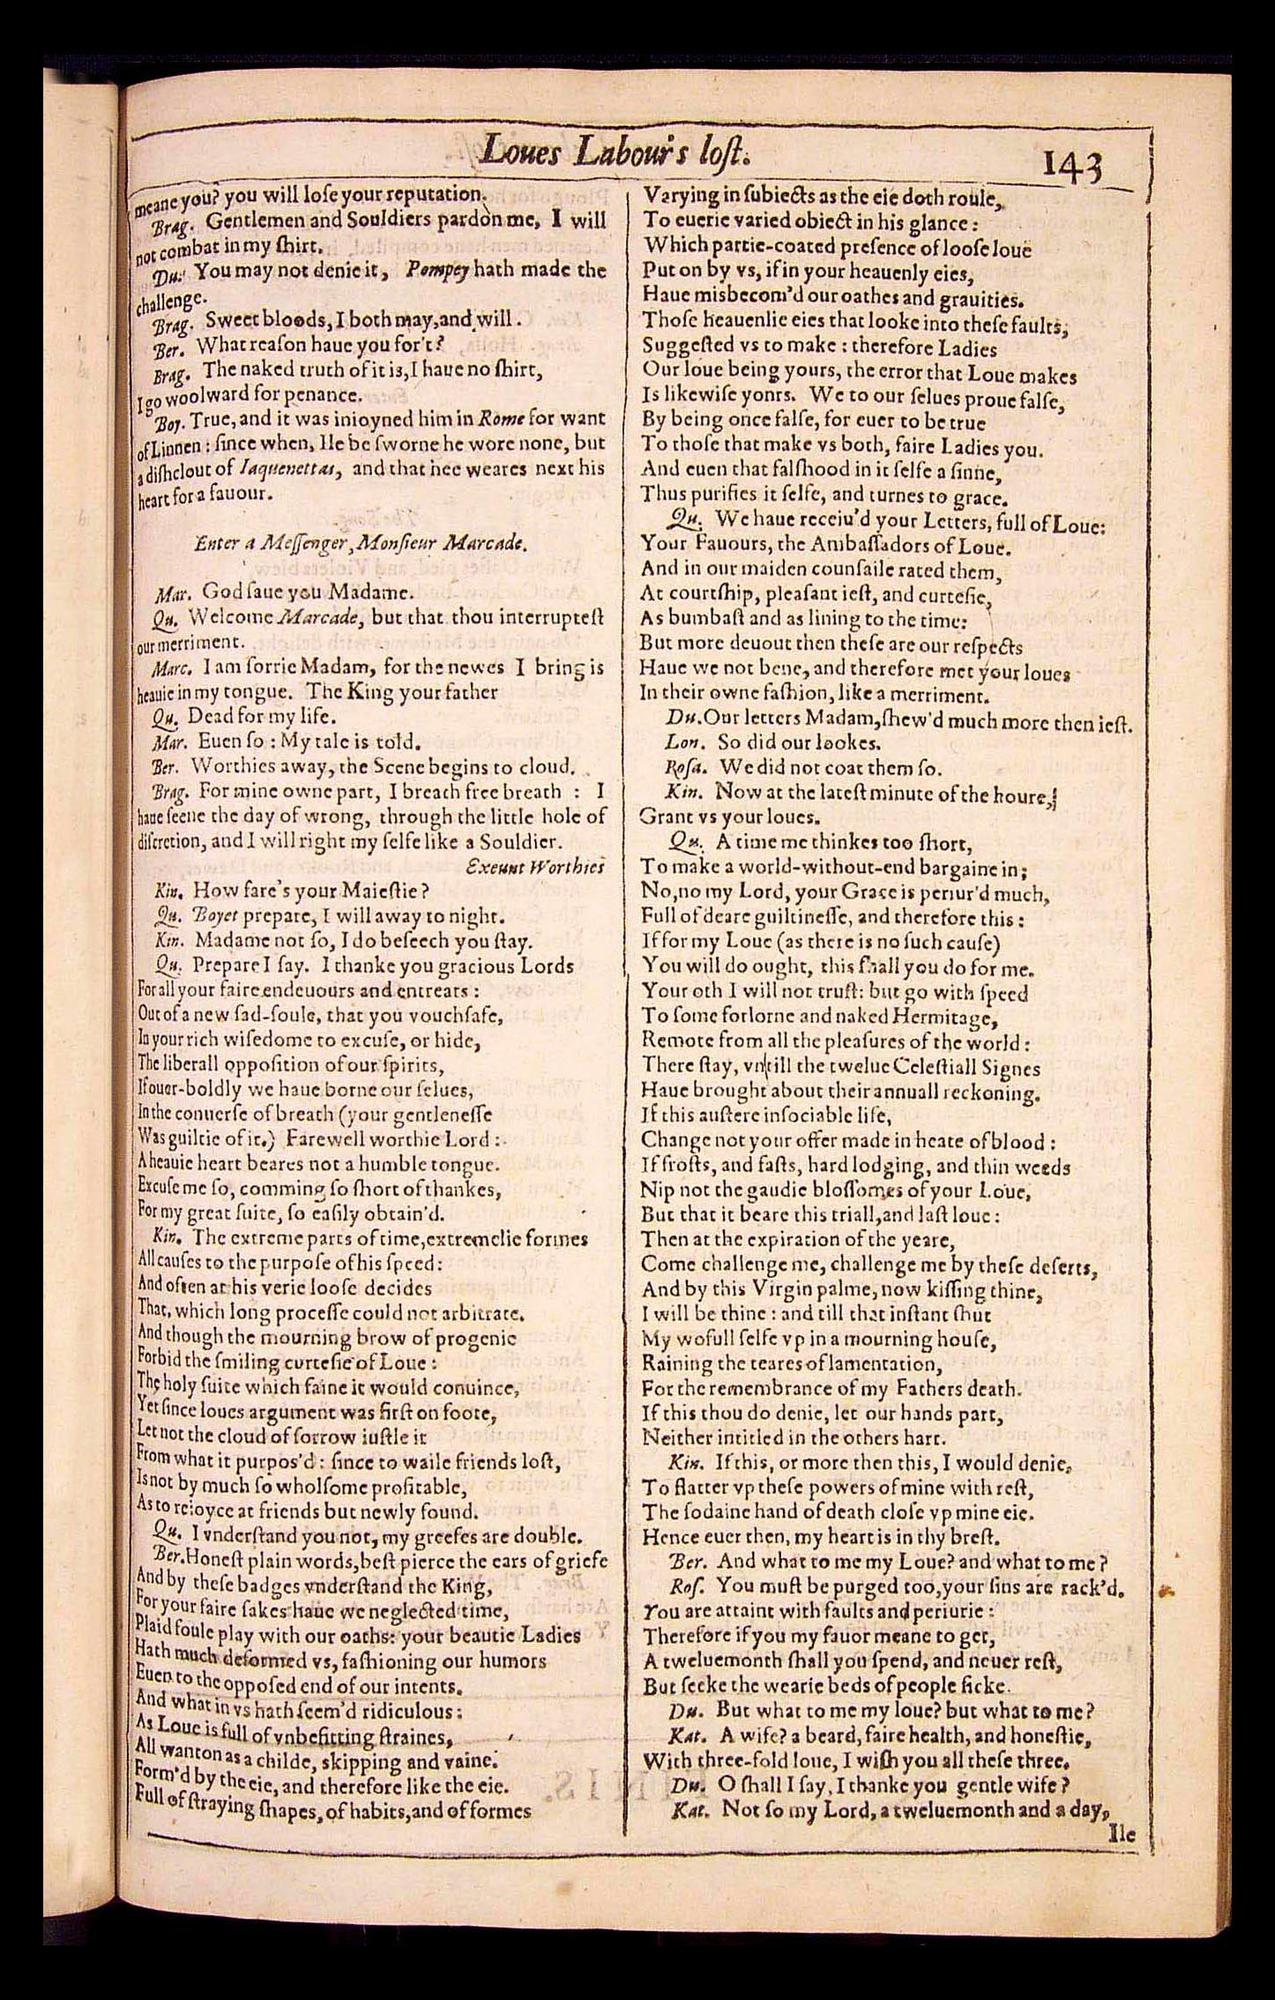 Loues Labour's lost.
143
meane you? you will lose your reputation.
Brag. Gentlemen and Souldiers pardon me, I will
not combat in my shirt.
Du. You may not denie it, Pompey hath made the
challenge.
Brag. Sweet bloods, I both may, and will.
Ber. What reason haue you for't?
Brag. The naked truth of it is, I haue no shirt,
I go woolward for penance.
Boy. True, and it was inioyned him in Rome for want
of Linnen: since when, Ile be sworne he wore none, but
a dishclout of Iaquenettas, and that hee weares next his
heart for a fauour.
Enter a Messenger, Monsieur Marcade.
Mar. God saue you Madame.
Qu. Welcome Marcade, but that thou interruptest
our merriment.
Marc. I am sorrie Madam, for the newes I bring is
heauie in my tongue. The King your father
Qu. Dead for my life.
Mar. Euen so: My tale is told.
Ber. Worthies away, the Scene begins to cloud.
Brag. For mine owne part, I breath free breath : I
haue seene the day of wrong, through the little hole of
discretion, and I will right my selfe like a Souldier.
Exeunt Worthies
Kin. How fare's your Maiestie?
Qu. Boyet prepare, I will away to night.
Kin. Madame not so, I do beseech you stay.
Qu. Prepare I say. I thanke you gracious Lords
For all your faire endeuours and entreats:
Out of a new sad-soule, that you vouchsafe,
In your rich wisedome to excuse, or hide,
The liberall opposition of our spirits,
If ouer-boldly we haue borne our selues,
In the conuerse of breath (your gentlenesse
Was guiltie of it.) Farewell worthie Lord:
A heauie heart beares not a humble tongue.
Excuse me so, comming so short of thankes,
For my great suite, so easily obtain'd.
Kin. The extreme parts of time, extremelie formes
All causes to the purpose of his speed:
And often at his verie loose decides
That, which long processe could not arbitrate.
And though the mourning brow of progenie
Forbid the smiling curtesie of Loue:
The holy suite which faine it would conuince,
Yet since loues argument was first on foote,
Let not the cloud of sorrow iustle it
From what it purpos'd: since to waile friends lost,
Is not by much so wholsome profitable,
As to reioyce at friends but newly found.
Qu. I vnderstand you not, my greefes are double.
Ber. Honest plain words, best pierce the ears of griefe
And by these badges vnderstand the King,
For your faire sakes haue we neglected time,
Plaid foule play with our oaths: your beautie Ladies
Hath much deformed vs, fashioning our humors
Euen to the opposed end of our intents.
And what in vs hath seem'd ridiculous:
As Loue is full of vnbefitting straines,
All wanton as a childe, skipping and vaine.
Form'd by the eie, and therefore like the eie.
Full of straying shapes, of habits, and of formes
Varying in subiects as the eie doth roule,
To euerie varied obiect in his glance:
Which partie-coated presence of loose loue
Put on by vs, if in your heauenly eies,
Haue misbecom'd our oathes and grauities.
Those heauenlie eies that looke into these faults,
Suggested vs to make: therefore Ladies
Our loue being yours, the error that Loue makes
Is likewise yours. We to our selues proue false,
By being once false, for euer to be true
To those that make vs both, faire Ladies you.
And euen that falshood in it selfe a sinne,
Thus purifies it selfe, and turnes to grace.
Qu. We haue receiu'd your Letters, full of Loue:
Your Fauours, the Ambassadors of Loue.
And in our maiden counsaile rated them,
At courtship, pleasant iest, and curtesie,
As bumbast and as lining to the time:
But more deuout then these are our respects
Haue we not bene, and therefore met your loues
In their owne fashion, like a merriment.
Du. Our letters Madam, shew'd much more then iest.
Lon. So did our lookes.
Rosa. We did not coat them so.
Kin. Now at the latest minute of the houre,
Grant vs your loues.
Qu. A time me thinkes too short,
To make a world-without-end bargaine in;
No, no my Lord, your Grace is periur'd much,
Full of deare guiltinesse, and therefore this:
If for my Loue (as there is no such cause)
You will do ought, this shall you do for me.
Your oth I will not trust: but go with speed
To some forlorne and naked Hermitage,
Remote from all the pleasures of the world:
There stay, vntill the twelue Celestiall Signes
Haue brought about their annuall reckoning.
If this austere insociable life,
Change not your offer made in heate of blood:
If frosts, and fasts, hard lodging, and thin weeds
Nip not the gaudie blossomes of your Loue,
But that it beare this triall, and last loue:
Then at the expiration of the yeare,
Come challenge me, challenge me by these deserts,
And by this Virgin palme, now kissing thine,
I will be thine: and till that instant shut
My wofull selfe vp in a mourning house,
Raining the teares of lamentation,
For the remembrance of my Fathers death.
If this thou do denie, let our hands part,
Neither intitled in the others hart.
Kin. If this, or more then this, I would denie,
To flatter vp these powers of mine with rest,
The sodaine hand of death close vp mine eie.
Hence euer then, my heart is in thy brest.
Ber. And what to me my Loue? and what to me?
Ros. You must be purged too, your sins are rack'd.
You are attaint with faults and periurie:
Therefore if you my fauor meane to get,
A tweluemonth shall you spend, and neuer rest,
But seeke the wearie beds of people sicke.
Du. But what to me my loue? but what to me?
Kat. A wife? a beard, faire health, and honestie,
With three-fold loue, I wish you all these three.
Du. O shall I say, I thanke you gentle wife?
Kat. Not so my Lord, a tweluemonth and a day,
Ile